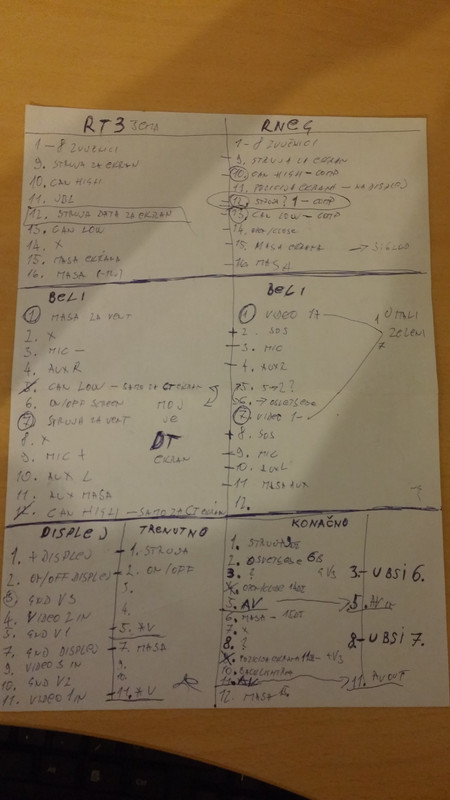 RT3
1-8 ZVUČNICI
9. STRUJA ZA EKRAN
10. CAN HIGH
11. VDL
12. STRUJA DATA ZA EKRAN
13. CAN LOW
14. X
15. MASA EKRANA
16. MASA
RNEG
1-8 ZVUČNICI
9. STRUJA ZA EKRAN
10. CAN HIGH - COMB
11. POZICIJA EKRANA - NA DISPLEJ
12. STRUJA 1 - COMB
13. CAN LOW - COMB
14. OPEN/CLOSE
15. MASA EKRANA
16. MASA
BELI
1 MASA ZA VENT
2. X
3. MIC -
4. AUX R
5. CAN LOW - SAMO ZA CT EKRAN
6. ON/OFF SCREEN
7. STRUJA ZA VENT
8. X
9. MIC +
10. AUX L
11. AUX MASA
12. CAN HIGH - SAMO ZA CT EKRAN
MOJ
JE
DT
EKRAN
BELI
1 VIDEO 1+
2. SOS
3. MIC
4. AUX R
7. VIDEO 1-
8. SOS
9. MIC
10. AUX L
11 MASA AUX
12.
1 U MALI
ZELENI
7
DISPLEJ
1. + DISPLEJ
2. ON/OFF DISPLEJ
3. GND V3
4. VIDEO 2 IN
5. GND V1
7. GND DISPLEJ
9. VIDEO 3 IN
10. GND V2
11. VIDEO 1 IN
TRENUTNO
1. STRUJA
2. ON/OFF
3.
4.
5. AV
7. MASA
9.
10.
11. AV
KONAČNO
3.
5. AV
6. MASA
7. X
8.
11. AV
12. MASA
3 - U BSI 6.
5. AV
8 - U BSI 7.
11. AVOUT